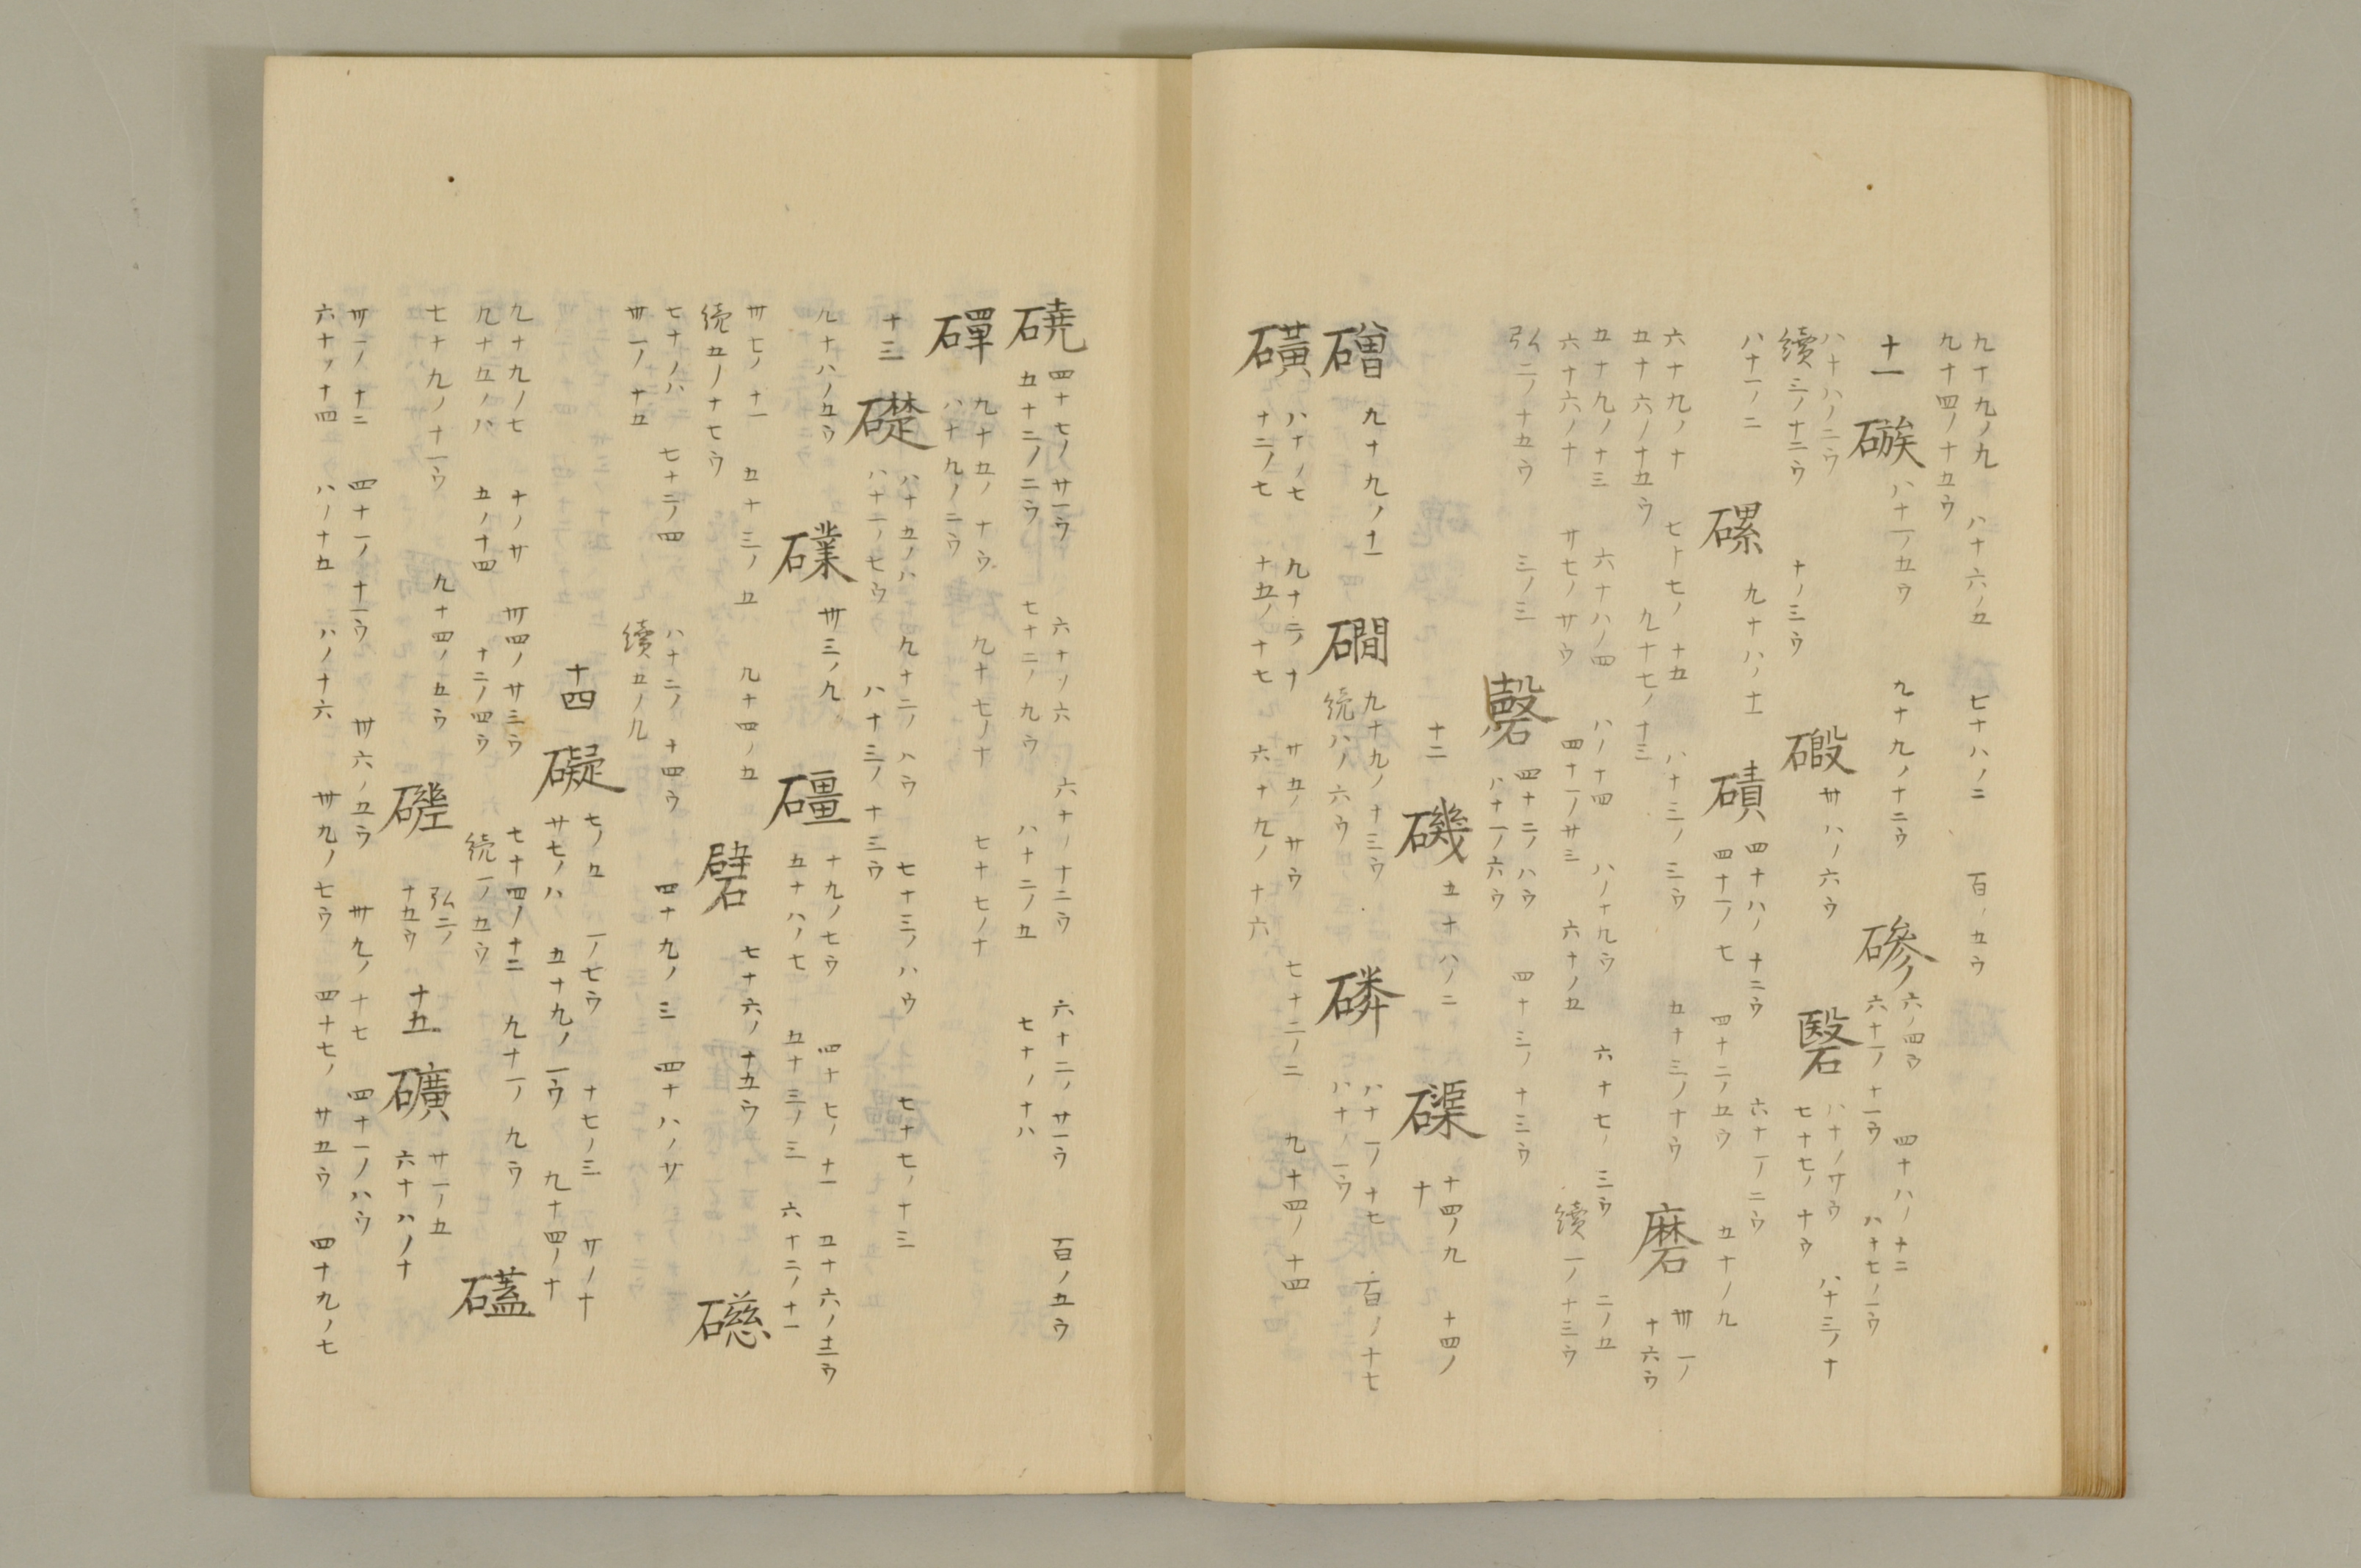 九十九ノ九 八十六ノ五 七十八ノ二 百ノ五ウ
九十四ノ十五ウ
十一 磭 八十一ノ五ウ 九十九ノ十二ウ 磣 六ノ四ウ 四十八ノ十二
六十一ノ十一ウ 八十七ノ一ウ
八十八ノ二ウ
續三ノ十二ウ 十ノ三ウ 磤 卅八ノ六ウ 硻 八十ノ廿ウ 八十三ノ十
七十七ノ十ウ
八十一ノ二 磥 九十八ノ十一 磧 四十八ノ十二ウ 六十一ノ二ウ
四十一ノ七 四十二ノ五ウ 五十ノ九
六十九ノ十 七十七ノ十五 八十三ノ三ウ 五十三ノ十ウ 磨 卅一ノ
五十六ノ十五ウ 九十七ノ十三 十六ウ
五十九ノ十三 六十八ノ四 八ノ十四 八ノ十九ウ 六十七ノ三ウ 二ノ五
六十六ノ十 廿七ノ廿ウ 四十一ノ廿三 六十ノ五 續一ノ十三ウ
弘二ノ十五ウ 三ノ三 磬 四十二ノ八ウ 四十三ノ十三ウ
八十一ノ六ウ
十二 磯 五十八ノ二 磲 十四ノ九 十四ノ
十
磳 九十九ノ十一 磵 九十九ノ十三ウ 磷 八十一ノ十七 百ノ十七
続八ノ六ウ 八十ノ一ウ
磺 八十ノ七 九十二ノ十 廿五ノ廿ウ 七十二ノ二 九十四ノ十四
十二ノ七 十五ノ十七 六十九ノ十六
磽 四十七ノ廿一ウ 六十ノ六 六十ノ十二ウ 六十二ノ廿一ウ 百ノ五ウ
五十二ノ二ウ 七十二ノ九ウ 八十二ノ五 七十ノ十八
磾 九十五ノ十ウ 九十七ノ十 七十七ノ十
八十九ノ二ウ
十三 礎 八十五ノ八 九十二ノ八ウ 七十三ノ八ウ 七十七ノ十三
八十二ノ七ウ 八十三ノ十三ウ
九十八ノ五ウ 礏 卅三ノ九 礓 十九ノ七ウ 四十七ノ十一 五十六ノ十二ウ
五十八ノ七 五十三ノ三 六十二ノ十一
卅七ノ十一 五十三ノ五 九十四ノ五 七十六ノ十五ウ
続五ノ十七ウ 礕 礠
七十ノ八 七十二ノ四 八十二ノ十四ウ 四十九ノ三 四十八ノ廿
卅一ノ十五 續五ノ九
十四 礙 七ノ五 一ノ七ウ 十七ノ三 廿ノ十
廿七ノ八 五十九ノ一ウ 九十四ノ十
九十九ノ七 十ノ廿 卅四ノ廿三ウ 七十四ノ十二 九十一ノ九ウ
九十五ノ八 五ノ十四 十二ノ四ウ 続一ノ五ウ 礚
七十九ノ十一ウ 九十四ノ五ウ 弘二ノ十五ウ 十五 礦 廿一ノ五
六十八ノ十
卅一ノ十二 四十一ノ十一ウ 卅六ノ五ウ 卅九ノ十七 四十一ノ八ウ
六十ノ十四 八ノ十五 八ノ十六 卅九ノ七ウ 四十七ノ廿五ウ 四十九ノ七